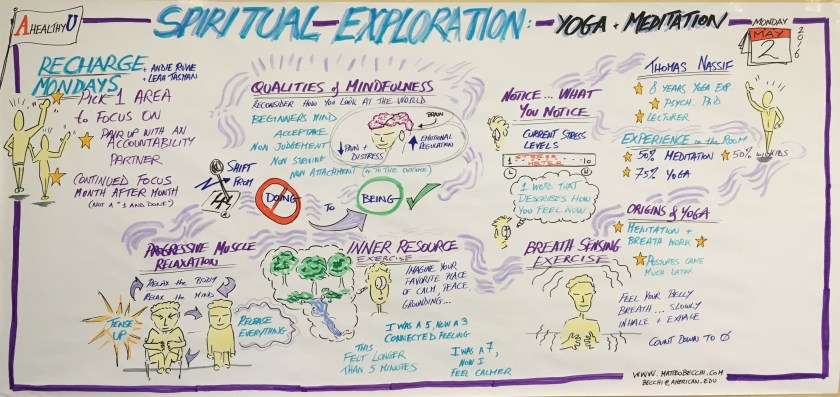 AHEALTHYU
SPIRITUAL EXPLORATION: YOGA + MEDITATION
MONDAY
MAY
2
2016
RECHARGE
MONDAYS
+ ANDIE ROWE
+ LEAH TASMAN
PICK 1 AREA
to FOCUS ON
PAIR UP WITH AN
ACCOUNTABILITY
PARTNER
CONTINUED FOCUS
MONTH AFTER MONTH
(NOT A "1 AND DONE")
QUALITIES of MINDFULNESS
RECONSIDER HOW YOU LOOK AT THE WORLD
BEGINNERS MIND
ACCEPTANCE
NON JUDGEMENT
NON STRIVING
NON ATTACHMENT (TO THE OUTCOME)
BRAIN
PAIN +
DISTRESS
EMOTIONAL
REGULATION
SHIFT
FROM
DOING
TO
BEING
NOTICE... WHAT
YOU NOTICE
CURRENT STRESS
LEVELS
1
10
L
H
1 WORD THAT
DESCRIBES HOW
YOU FEEL NOW
THOMAS NASSIF
8 YEARS YOGA EXP
PSYCH. PhD
LECTURER
EXPERIENCE in the ROOM
50% MEDITATION
50% W/KIDS
75% YOGA
ORIGINS of YOGA
MEDITATION +
BREATH WORK
POSTURES CAME
MUCH LATER
PROGRESSIVE MUSCLE
RELAXATION
RELAX the BODY
RELAX the MIND
TENSE
UP
RELEASE
EVERYTHING
INNER RESOURCE
EXERCISE
IMAGINE YOUR
FAVORITE PLACE
OF CALM, PEACE,
GROUNDING...
I WAS A 5, NOW A 3
CONNECTED FEELING
THIS
FELT LONGER
THAN 5 MINUTES
I WAS A 7,
NOW I
FEEL CALMER
BREATH SENSING
EXERCISE
FEEL YOUR BELLY
BREATH... SLOWLY
INHALE + EXHALE
COUNT DOWN TO Ø
WWW.MATTEOBECCHI.COM
BECCHI@AMERICAN.EDU